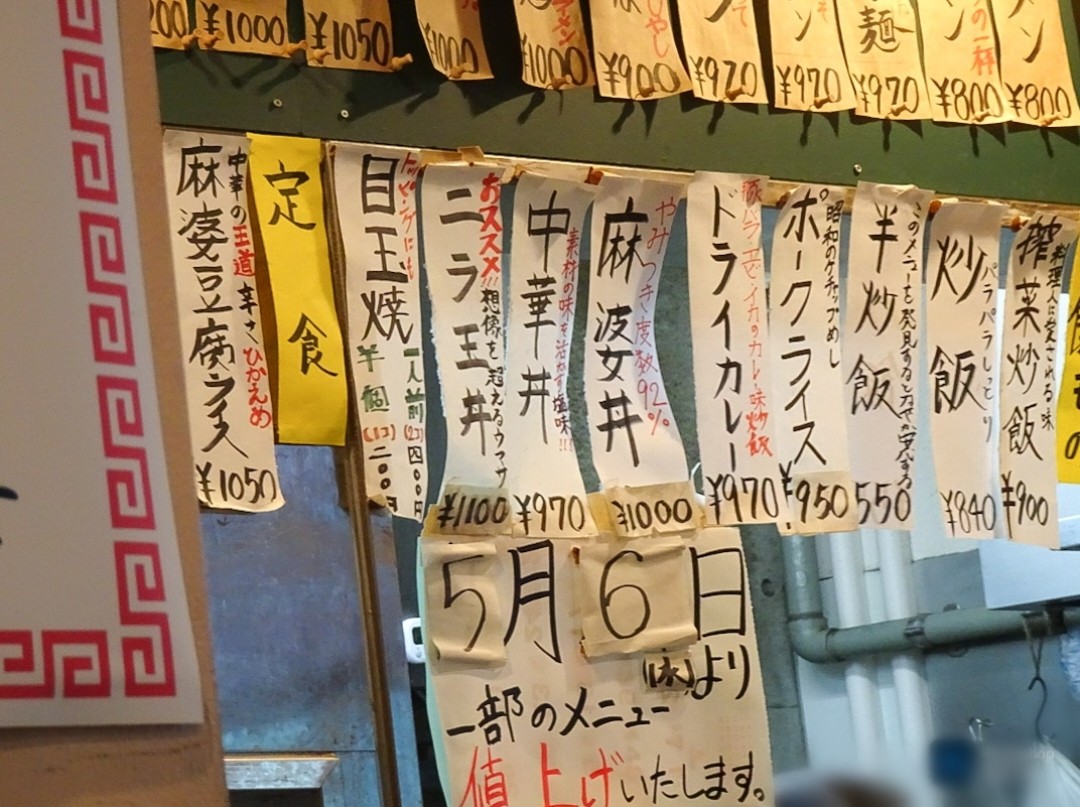 ¥1000
¥1050
¥1000
¥1000
¥900
¥970
¥970
麺
¥970
の一杯
¥800
¥800
麻婆豆腐ライス
中華の王道 辛さ ひかえめ
¥1050
定食
目玉焼
トッピングにも
一人前(2コ)四〇〇円
半個(1コ)二〇〇円
ニラ玉丼
おススメ!!想像を超えるウマサ
¥1100
中華丼
素材の味を活かす塩味!!!
¥970
麻婆丼
やみつき度数92%
¥1000
ドライカレー
豚バラ・エビ・イカのカレー味炒飯
¥970
ポークライス
昭和のケチャップめし
¥950
半炒飯
このメニューを発見するとなぜか安心する
550
炒飯
パラパラしっとり
¥840
搾菜炒飯
料理人に愛される味
¥900
5月6日
(水)より
一部のメニュー
値上げいたします。